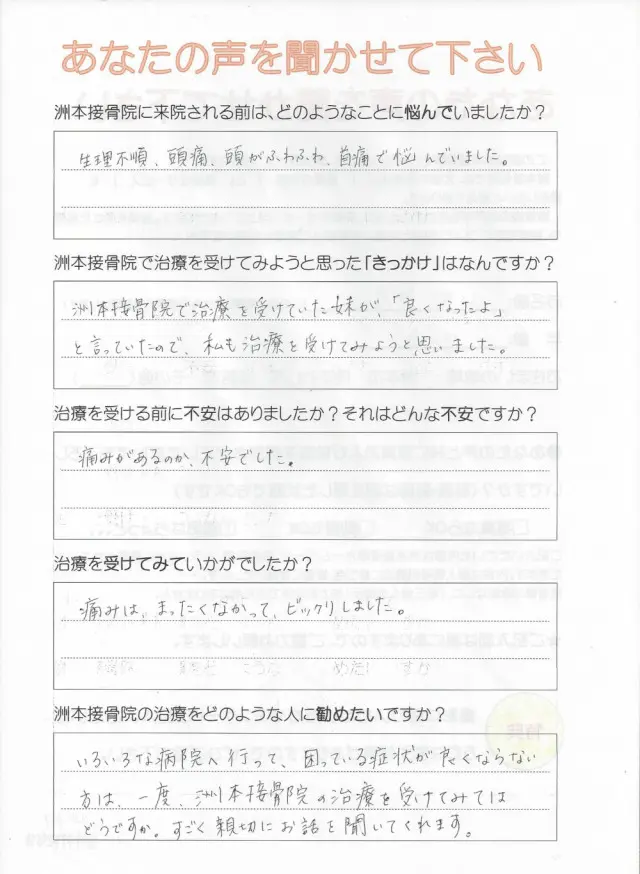 あなたの声を聞かせて下さい
洲本接骨院に来院される前は、どのようなことに悩んでいましたか？
生理不順、頭痛、頭がふわふわ、首痛で悩んでいました。
洲本接骨院で治療を受けてみようと思った「きっかけ」はなんですか？
洲本接骨院で治療を受けていた妹が、「良くなったよ」
と言っていたので、私も治療を受けてみようと思いました。
治療を受ける前に不安はありましたか？それはどんな不安ですか？
痛みがあるのか、不安でした。
治療を受けてみていかがでしたか？
痛みは、まったくなかって、ビックリしました。
洲本接骨院の治療をどのような人に勧めたいですか？
いろいろな病院へ行って、困っている症状が良くならない
方は、一度、洲本接骨院の治療を受けてみては
どうですか。すごく親切にお話を聞いてくれます。